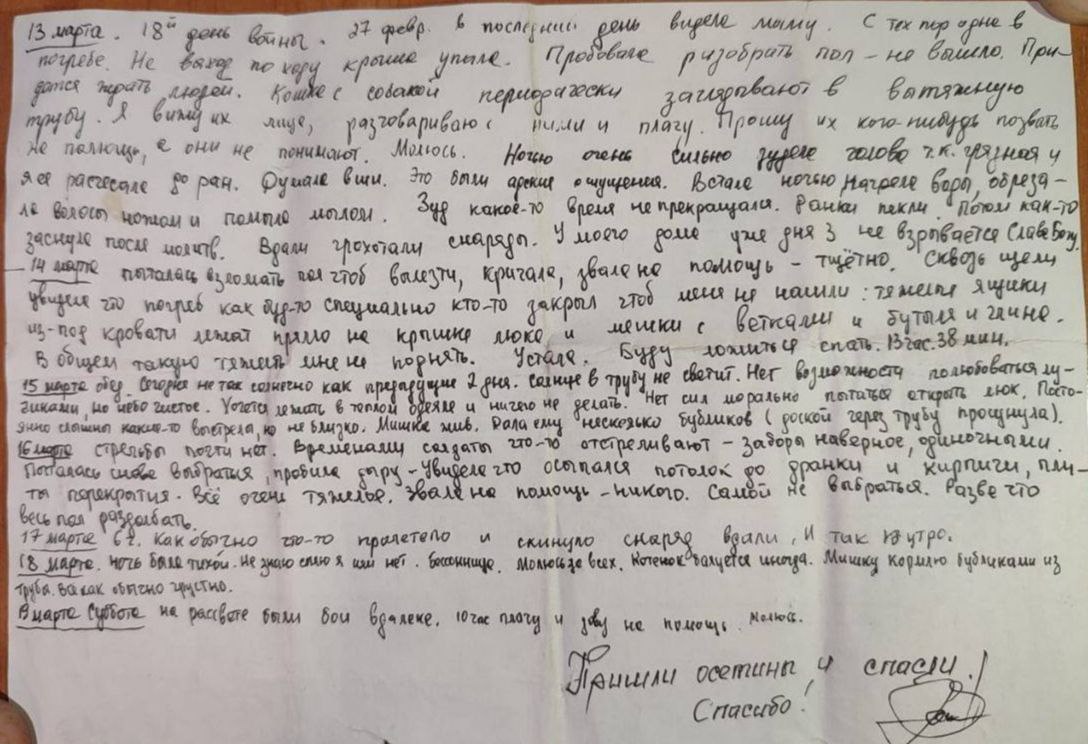 13 марта. 18й день войны. 27 февр. в последний день видела маму. С тех пор одна в
погребе. Не выход по ходу крыша упала. Пробовала разобрать пол – не вышло. При-
дется ждать людей. Кошка с собакой периодически заглядывают в вытяжную
трубу. Я вижу их лица, разговариваю с ними и плачу. Прошу их кого-нибудь позвать
на помощь, а они не понимают. Молюсь. Ночью очень сильно зудела голова т.к. грязная и
я ее расчесала до ран. Думала вши. Это были адские ощущения. Встала ночью нагрела воды, обреза-
ла волосы ножом и помыла мылом. Зуд какое-то время не прекращался. Ранки пекли. Потом как-то
заснула после молитв. Вдали грохотали снаряды. У моего дома уже дня 3 не взрывается Слава Богу.
14 марта пыталась взломать пол чтоб вылезти, кричала, звала на помощь – тщётно. Сквозь щели
увидела что погреб как буд-то специально кто-то закрыл чтоб меня не нашли: тяжелые ящики
из-под кровати лежат прямо на крышке люка и мешки с ветками и бутыля и глина.
В общем такую тяжесть мне не поднять. Устала. Буду ложиться спать. 13 час. 38 мин.
15 марта обед. Сегодня не так солнечно как предыдущие 2 дня. Солнце в трубу не светит. Нет возможности полюбоваться лу-
чиками, но небо чистое. Хочется лежать в теплой одеяле и ничего не делать. Нет сил морально пытаться открыть люк. Посто-
янно слышны какие-то выстрелы, но не близко. Мишка жив. Дала ему несколько бубликов (доской через трубу просунула).
16 марта стрельбы почти нет. Временами солдаты что-то отстреливают – заборы наверное, одиночными.
Пыталась снова выбраться, пробила дыру – увидела что осыпался потолок до дранки и кирпичи, пли-
ты перекрытия. Всё очень тяжелое. Звала на помощь – никого. Самой не выбраться. Разве что
весь пол раздолбать.
17 марта 6ч. Как обычно что-то пролетело и скинуло снаряд вдали, И так утро.
18 марта. ночь была тихой. Не знаю сплю я или нет. Бессонница. Молюсь за всех. Котенок балуется иногда. Мишку кормлю бубликами из
трубы. Все как обычно грустно.
19 марта Суббота на рассвете были бои вдалеке. 10 час плачу и зову на помощь. Молюсь.
Пришли осетины и спасли!
Спасибо!